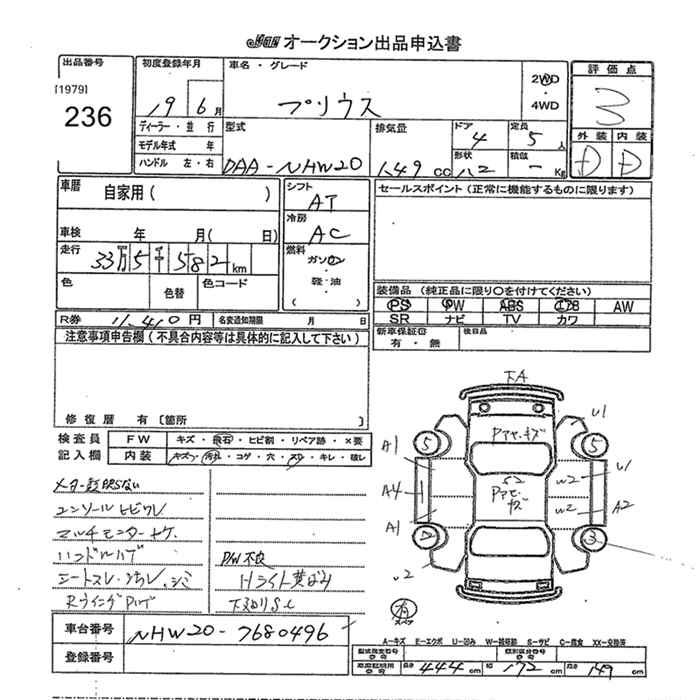 オークション出品申込書
出品番号 初度登録年月 車名・グレード 評価点
[1979] 236
19 6月 プリウス 2WD ・ 4WD 3
ディーラー・並行 型式 排気量 ドア 4 定員 5人 外装 内装
モデル年式 年
ハンドル 左・右 DAA-NHW20 1.49cc 形状 積載 - Kg D D
車歴 自家用( ) シフト AT セールスポイント(正常に機能するものに限ります)
車検 年 月( 日) 冷房 AC
走行 33万5千582km 燃料 ガソリン
軽・油
( )
色 色替 色コード 装備品 (純正品に限り○を付けてください)
PS PW ABS エアB AW
R券 11,410円 名変通知期限 月 日 SR ナビ TV カワ
注意事項申告欄(不具合内容等は具体的に記入して下さい) 新車保証書 有・無 後日品
修復歴 有 [箇所 ]
検査員 FW キズ・飛石・ヒビ割・リペア跡・×要
記入欄 内装 キズ・汚れ・コゲ・穴・スレ・キレ・破レ
下A
U1
Pアヤ.キズ
5 5
A1 U1
A4 W2 S2 A2
W2
A1
3
U2
メーター
コンソールヒビワレ
マルチモニター
P/W不良
Hライト黄ばみ
シートスレ
下廻りS
有 スペア
車台番号 NHW20-7680496
登録番号
A-キズ E-エクボ U-凹み W-補修跡 S-サビ C-腐食 XX-交換済
型式指定番号 類別区分番号
車庫証明用 長さ 444cm 幅 172cm 高さ 149cm